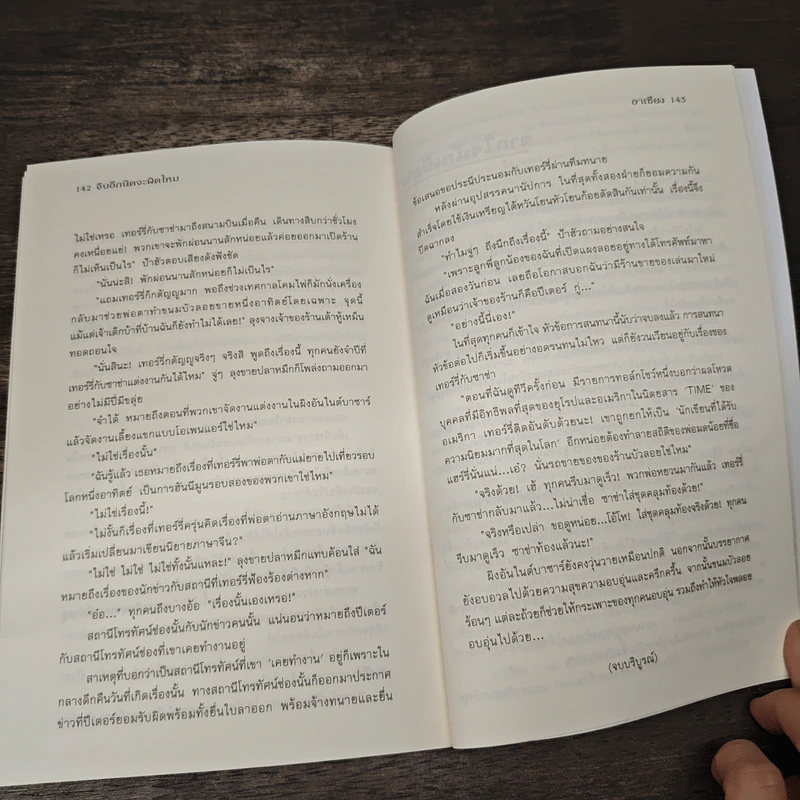 142 จิบอีกนิดจะผิดไหม
ไม่ใช่เหรอ เทอร์รี่กับซาช่ามาถึงสนามบินเมื่อคืน เดินทางสิบกว่าชั่วโมง
คงเหนื่อยแย่! พวกเขาจะพักผ่อนนานสักหน่อยแล้วค่อยออกมาเปิดร้าน
ก็ไม่เห็นเป็นไร" ป้าฮัวตอบเสียงดังฟังชัด
"นั่นน่ะสิ! พักผ่อนนานสักหน่อยก็ไม่เป็นไร"
"แถมเทอร์รี่ก็กตัญญูมาก พอถึงช่วงเทศกาลโคมไฟก็มักนั่งเครื่อง
กลับมาช่วยพ่อตาทำขนมบัวลอยขายหนึ่งอาทิตย์โดยเฉพาะ จุดนี้
แม้แต่เจ้าเด็กบ้าที่บ้านฉันก็ยังทำไม่ได้เลย!" ลุงจางเจ้าของร้านเต้าหู้เหม็น
ทอดถอนใจ
"นั่นสินะ! เทอร์รี่กตัญญูจริงๆ จริงสิ พูดถึงเรื่องนี้ ทุกคนยังจำปีที่
เทอร์รี่กับซาช่าแต่งงานกันได้ไหม" จู่ๆ ลุงขายปลาหมึกก็โพล่งถามออกมา
อย่างไม่มีปี่มีขลุ่ย
"จำได้ หมายถึงตอนที่พวกเขาจัดงานแต่งงานในผิงอันไนต์บาซาร์
แล้วจัดงานเลี้ยงแขกแบบโอเพนแอร์ใช่ไหม"
"ไม่ใช่เรื่องนั้น"
"ฉันรู้แล้ว เธอหมายถึงเรื่องที่เทอร์รี่พาพ่อตากับแม่ยายไปเที่ยวรอบ
โลกหนึ่งอาทิตย์ เป็นการฮันนีมูนรอบสองของพวกเขาใช่ไหม"
"ไม่ใช่เรื่องนี้!"
"ไม่งั้นก็เรื่องที่เทอร์รี่ครุ่นคิดเรื่องที่พ่อตาอ่านภาษาอังกฤษไม่ได้
แล้วเริ่มเปลี่ยนมาเขียนนิยายภาษาจีน?"
"ไม่ใช่ ไม่ใช่ ไม่ใช่ทั้งนั้นแหละ!" ลุงขายปลาหมึกแทบค้อนใส่ "ฉัน
หมายถึงเรื่องของนักข่าวกับสถานีที่เทอร์รี่ฟ้องร้องต่างหาก"
"อ๋อ..." ทุกคนถึงบางอ้อ "เรื่องนั้นเองเหรอ!"
สถานีโทรทัศน์ช่องนั้นกับนักข่าวคนนั้น แน่นอนว่าหมายถึงปีเตอร์
กับสถานีโทรทัศน์ช่องที่เขาเคยทำงานอยู่
สาเหตุที่บอกว่าเป็นสถานีโทรทัศน์ที่เขา 'เคยทำงาน' อยู่ก็เพราะใน
กลางดึกคืนวันที่เกิดเรื่องนั้น ทางสถานีโทรทัศน์ช่องนั้นก็ออกมาประกาศ
ข่าวที่ปีเตอร์ยอมรับผิดพร้อมทั้งยื่นใบลาออก พร้อมจ้างทนายและยื่น
อาเซียง 143
ข้อเสนอขอประนีประนอมกับเทอร์รี่ผ่านทีมทนาย
หลังผ่านอุปสรรคนานัปการ ในที่สุดทั้งสองฝ่ายก็ยอมความกัน
สำเร็จโดยใช้เงินเหรียญไต้หวันโยนหัวโยนก้อยตัดสินกันเท่านั้น เรื่องนี้จึง
ปิดฉากลง
"ทำไมจู่ๆ ถึงนึกถึงเรื่องนี้" ป้าฮัวถามอย่างสนใจ
"เพราะลูกพี่ลูกน้องของฉันที่เปิดแผงลอยอยู่ทางใต้โทรศัพท์มาหา
ฉันเมื่อสองวันก่อน เลยถือโอกาสบอกฉันว่ามีร้านขายของเล่นมาใหม่
ดูเหมือนว่าเจ้าของร้านก็คือปีเตอร์ กู่..."
"อย่างนี้นี่เอง!"
ในที่สุดทุกคนก็เข้าใจ หัวข้อการสนทนานี้นับว่าจบลงแล้ว การสนทนา
หัวข้อต่อไปก็เริ่มขึ้นอย่างอดรนทนไม่ไหว แต่ก็ยังวนเวียนอยู่กับเรื่องของ
เทอร์รี่กับซาช่า
"ตอนที่ฉันดูทีวีครั้งก่อน มีรายการทอล์กโชว์หนึ่งบอกว่าผลโหวต
บุคคลที่มีอิทธิพลที่สุดของยุโรปและอเมริกาในนิตยสาร 'TIME' ของ
อเมริกา เทอร์รี่ติดอันดับด้วยนะ! เขาถูกยกให้เป็น 'นักเขียนที่ได้รับ
ความนิยมมากที่สุดในโลก' อีกหน่อยต้องทำลายสถิติของพ่อมดน้อยที่ชื่อ
แฮร์รี่นั่นแน่...เอ๋? นั่นรถขายของของร้านบัวลอยใช่ไหม"
"จริงด้วย! เฮ้ ทุกคนรีบมาดูเร็ว! พวกพ่อหยวนมากันแล้ว เทอร์รี่
กับซาช่ากลับมาแล้ว...ไม่น่าเชื่อ ซาช่าใส่ชุดคลุมท้องด้วย!"
"จริงหรือเปล่า ขอดูหน่อย...โอ้โห! ใส่ชุดคลุมท้องจริงด้วย! ทุกคน
รีบมาดูเร็ว ซาช่าท้องแล้วนะ!"
ผิงอันไนต์บาซาร์ยังคงวุ่นวายเหมือนปกติ นอกจากนั้นบรรยากาศ
ยังอบอวลไปด้วยความสุขความอบอุ่นและครึกครื้น จากนั้นขนมบัวลอย
ร้อนๆ แต่ละถ้วยก็ช่วยให้กระเพาะของทุกคนอบอุ่น รวมถึงทำให้หัวใจพลอย
อบอุ่นไปด้วย...
(จบบริบูรณ์)